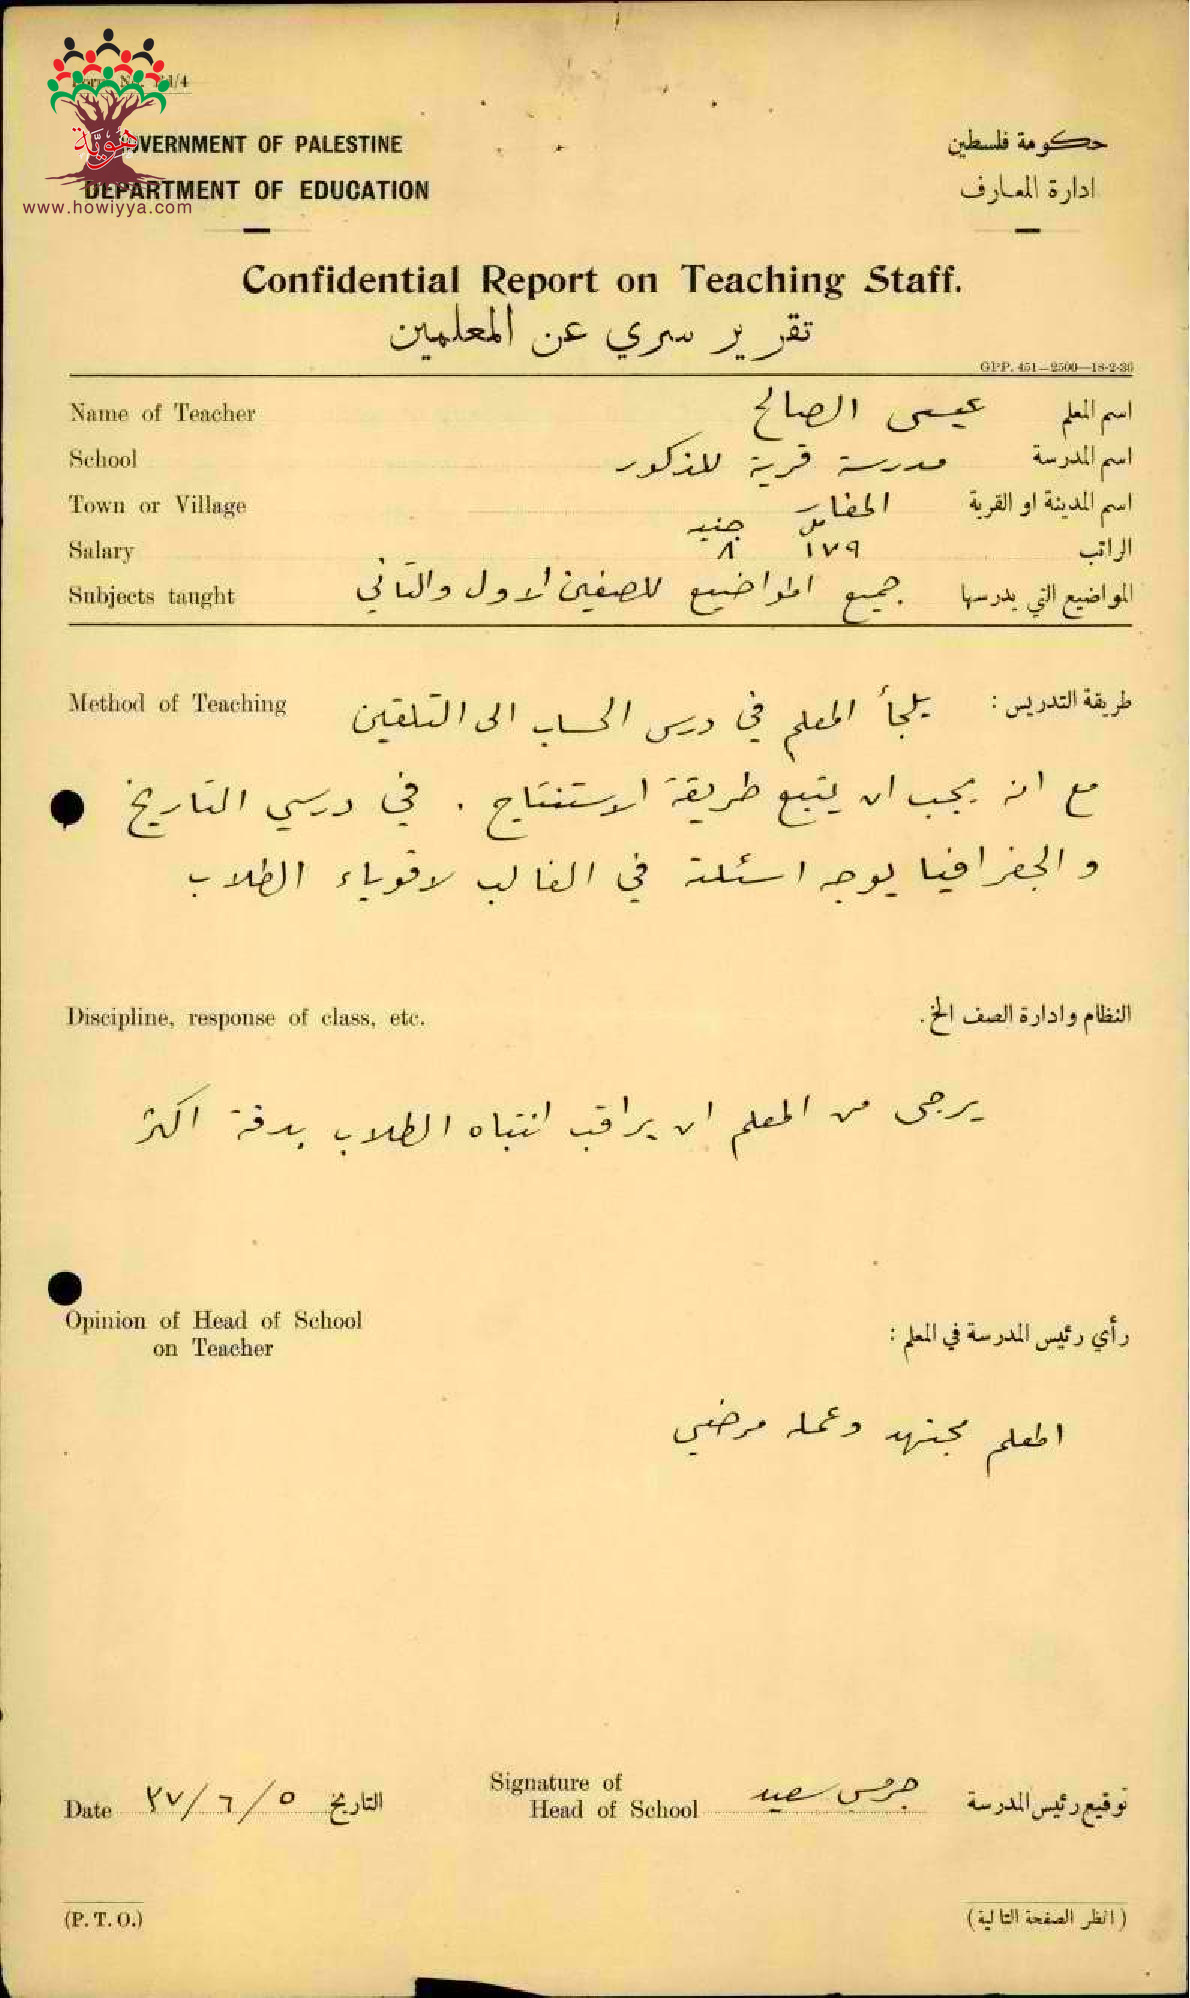 هوية
www.howiyya.com
GOVERNMENT OF PALESTINE
حكومة فلسطين
DEPARTMENT OF EDUCATION
ادارة المعارف
Confidential Report on Teaching Staff.
تقرير سري عن المعلمين
GPP. 451—2500—18-2-36
Name of Teacher عيسى الصالح اسم المعلم
School مدرسة قرية للذكور اسم المدرسة
Town or Village المغار اسم المدينة او القرية
مل جنيه
Salary ١٧٩ ٨ الراتب
Subjects taught جميع المواضيع للصفين الاول والثاني المواضيع التي يدرسها
Method of Teaching طريقة التدريس : يلجأ المعلم في درس الحساب الى التلقين
مع انه يجب ان يتبع طريقة الاستنتاج . في درسي التاريخ
والجغرافيا يوجه اسئلته في الغالب لاقوياء الطلاب
Discipline, response of class, etc. النظام وادارة الصف الخ.
يرجى من المعلم ان يراقب انتباه الطلاب بدقة اكثر
Opinion of Head of School
on Teacher
رأي رئيس المدرسة في المعلم :
المعلم مجتهد وعمله مرضي
Signature of
Head of School جرجس سعيد توقيع رئيس المدرسة
Date ٣٧/٦/٥ التاريخ
(P. T. O.) (انظر الصفحة التالية)